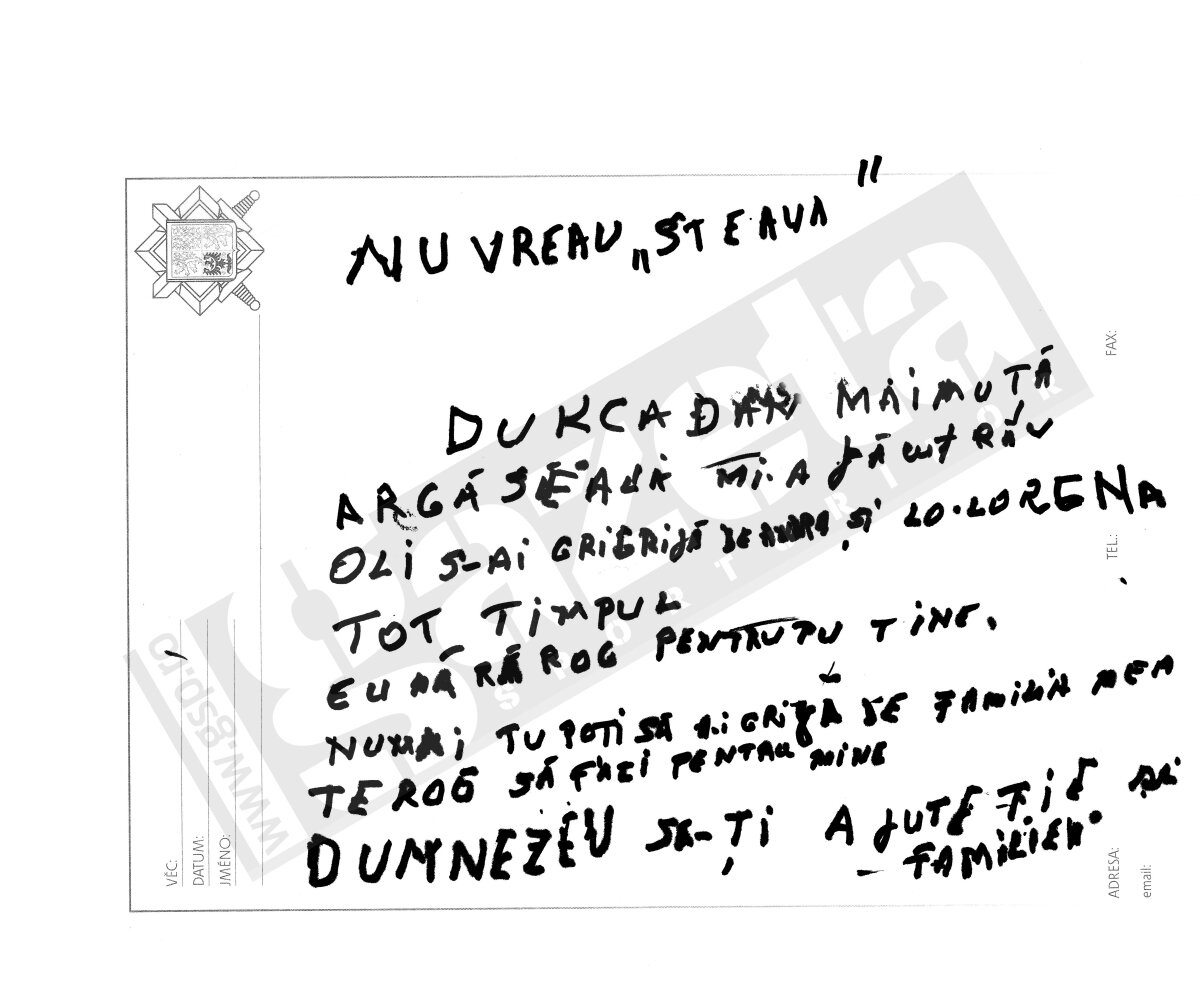 NU VREAU „STEAUA"
DUKCADAM MAIMUȚĂ
ARGĂSEALĂ MI-A FĂCUT RĂU
OLI S-AI GRIGRIJĂ DE ANDRA ȘI LO-LORENA
TOT TIMPUL
EU MĂ RĂ ROG PENTRUPU TINE.
NUMAI TU POTI SĂ AI GRIJĂ DE FAMILIA MEA
TE ROG SĂ FACI PENTRU MINE
DUMNEZEU SĂ-ȚI AJUTE ȚIE ȘI
FAMILIEI
VĚC:
DATUM:
JMÉNO:
FAX:
TEL.:
ADRESA:
email:
gazeta
SPORTURILOR
www.gsp.ro